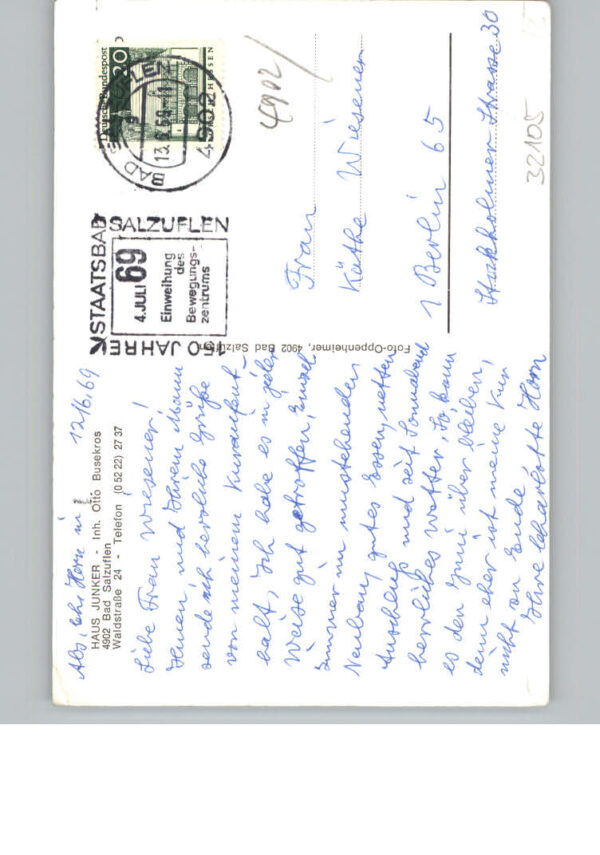 Abs. Ch. Horn in
12/6.69
HAUS JUNKER - Inh. Otto Busekros
4902 Bad Salzuflen
Waldstraße 24 - Telefon (0 52 22) 27 37
Liebe Frau Wiesener!
Ihnen und Ihrem Mann
sende ich herzliche Grüße
von meinem Kuraufent-
halt, Ich habe es in jeder
Weise gut getroffen, Einzel-
zimmer im umstehenden
Neubau, gutes Essen, netten
Anschluß und seit Sonnabend
herrliches Wetter, So kann
es den Juni über bleiben,
denn eher ist meine Kur
nicht zu Ende
Ihre Charlotte Horn
Foto-Oppenheimer, 4902 Bad Salzuflen
150 JAHRE
STAATSBAD
SALZUFLEN
4. JULI 69
Einweihung
des
Bewegungs-
zentrums
Deutsche Bundespost
20
LORSCH/HESSEN
BAD SALZUFLEN
13.6.69
4902
4902/
Frau
Käthe Wiesener
1 Berlin 65
Stockholmer Strasse 30
32105